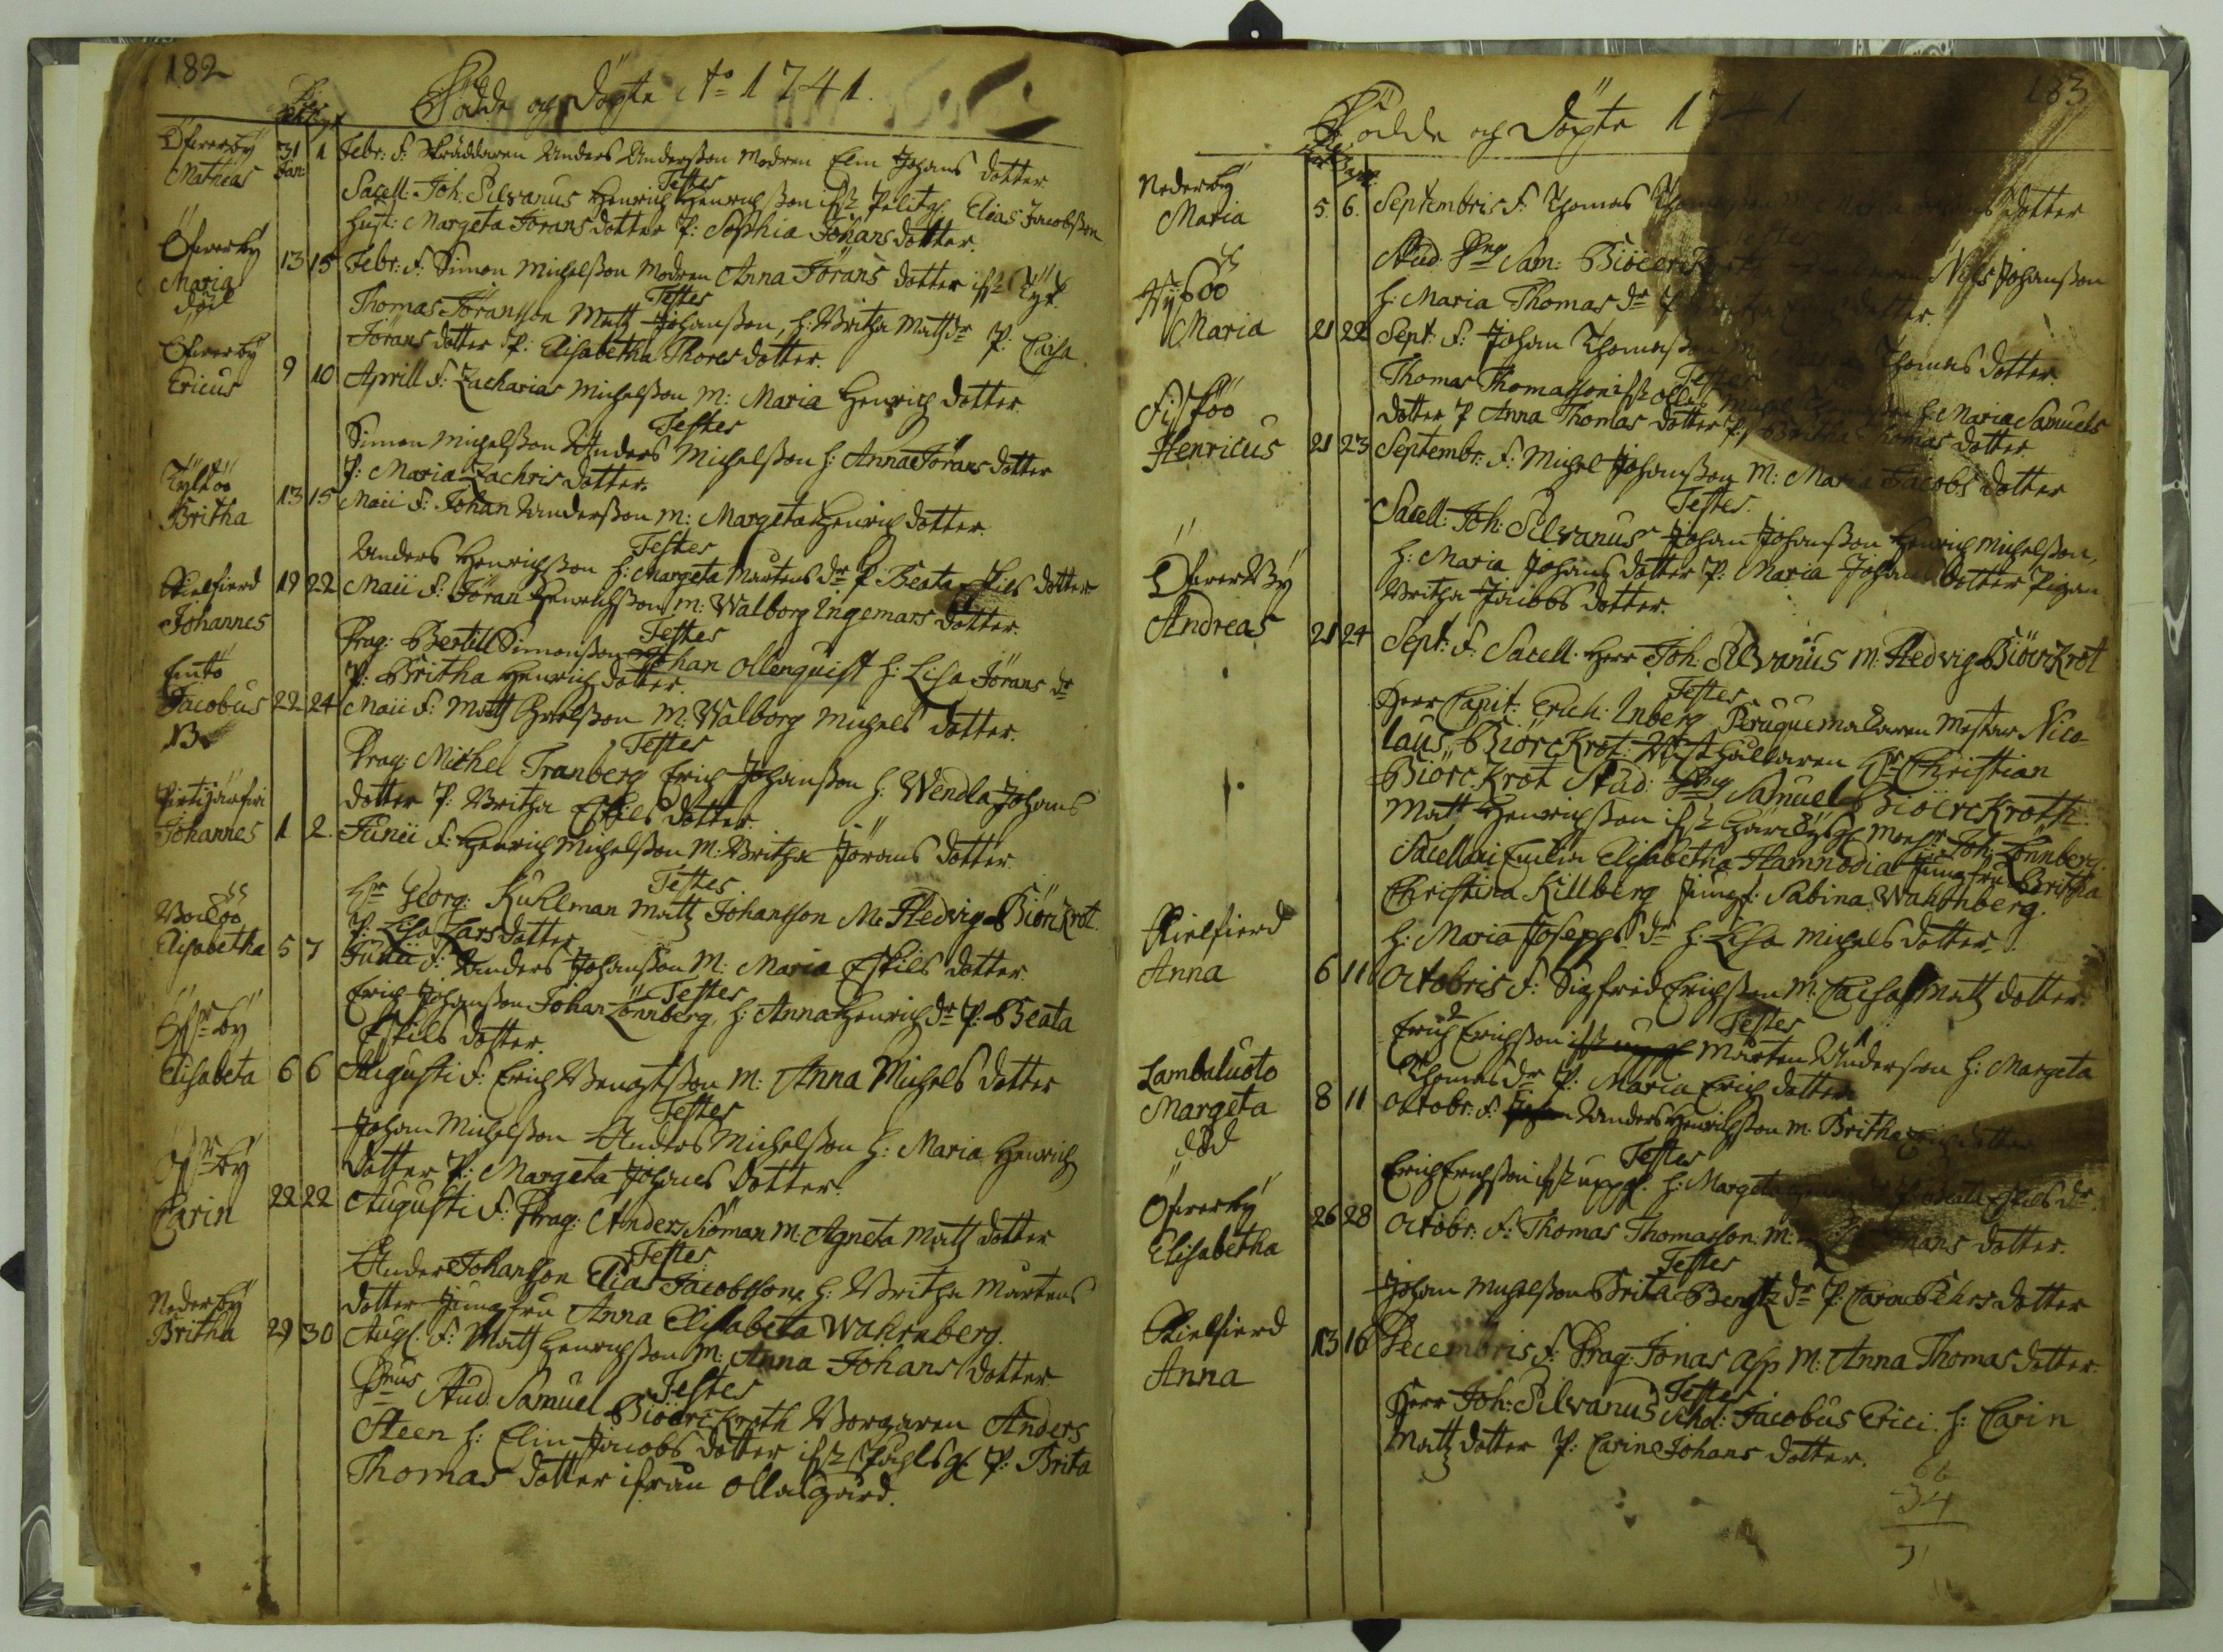 182
Födde och Döpte A:o 1741.
Öfwerby 31 1 Febr: F: Skräddaren Anders Andersson Modren Elin Johans dotter
Matheas Jan:
Testes
Sacell: Joh: Silvanus Henrich Henrichsson Elias Jacobsson
Hust: Margeta Jörans dotter P: Sophia Johans dotter.
Öfwerby 13 15 Febr: F: Simon Michelsson Modren Anna Jörans dotter
Maria
död
Testes
Thomas Jöransson Matts Johansson, h: Britha Matts dr P: Caisa
Jörans dotter P: Elisabetha Thores dotter.
Öfwerby
Ericus 9 10 Aprill F: Zacharias Michelsson M: Maria Henrich dotter
Testes
Simon Michelsson Anders Michelsson h: Anna Jörans dotter
P: Maria Zachris dotter.
Kyltöö
Britha 13 15 Maii F: Johan Andersson M: Margeta Henrich dotter.
Testes
Anders Henrichsson h: Margeta Mårtens dr P: Beata Eskils dotter
Skielfierd 19 22 Maii F: Jöran Henrichsson M: Walborg Ingemars dotter.
Johannes
Testes
Drag: Bertill Simonsson Johan Ollenquist h: Lisa Jörans dr
P: Britha Henrich dotter.
Emtö
Jacobus 22 24 Maii F: Matts M: Walborg Michels dotter.
NB
Testes
Drag: Michel Tranberg Erich Johansson h: Wendla Johans
dotter P: Britha Eskils dotter.
Pirtijärfwi
Johannes 1 2. Junii F: Henrich Michelsson M: Britha Jörans dotter
Testes
Hr Georg: Kuhlman Matts Johansson M: Hedvig Biörckrot.
P: Lisa Lars dotter
Boxöö
Elisabetha 5 7 Junii F: Anders Johansson M: Maria Eskils dotter.
Testes
Erich Johansson Johan Lönnberg, h: Anna Henrich dr P: Beata
Eskils dotter.
Öfr by
Elisabeta 6 6 Augusti F: Erich Bengtsson M: Anna Michels dotter
Testes
Johan Michelsson Anders Michelsson h: Maria Henrich
dotter P: Margeta Johans dotter.
Öfr by
Carin 22 22 Augusti F: Drag: Anders Siöman M: Agneta Matts dotter
Testes
Anders Johansson Elias Jacobsson, h: Britha Mårtens
dotter Jungfru Anna Elisabeta Wahrnberg.
Nederby
Britha 29 30 Aug: F: Matts Henrichsson M: Anna Johans dotter
Testes
Dnus Stud. Samuel Biöörckroth Borgaren Anders
Steen h: Elin Jacobs dotter P: Brita
Thomas dotter ifrån Ollasgård.
183
Födde och Döpte 1741
Nederby
Maria 5. 6. Septembris F: Thomas dotter
Stud. Dng Sam: Biöörckroth Nils Johansson
h: Maria Thomas dr
Maria 21 22 Sept: F: Johan Thomasson Thomas dotter.
Testes
Thomas Thomasson h: Maria Samuels
dotter P Anna Thomas dotter P: Britha Thomas dotter
Fisköö
Henricus 21 23 Septembr: F: Michel Johansson M: Maria Jacobs dotter
Testes.
Sacell: Joh: Silvanus Johan Johansson Henrich Michelsson,
h: Maria Johans dotter P: Maria Johans dotter Pigan
Britha Jacobs dotter.
Öfwerby
Andreas 21 24 Sept: F: Sacell. Herr Joh: Silvanus M: Hedvig Biörckrot
Testes
Herr Capit: Erich: Inberg Peruquemakaren Mestar Nico-
laus Biörckrot: Hr Christian
Biörckrot Stud: Dng Samuel Biöörckroth.
Matts Henrichsson Joh: Lönnberg.
Elisabetha Hamnodia Jungfru Britha
Christina Killberg Jungf: Sabina Wahrnberg.
h: Maria Josephs dr h: Lisa Michels dotter.
Skielfierd
Anna 6 11 Octobris F: Sigfred Erichsson M: Caisa Matts dotter.
Testes
Erich Erichsson Mårten Andersson h: Margeta
Thomas dr P: Maria Erich dotter
Lambaluoto
Margeta 8 11 Octobr: F: Anders Henrichsson M: Britha dotter
död
Testes
Erich Erichsson h: Margeta P: Beata Eskils dr.
Öfwerby 26 28 Octobr: F: Thomas Thomasson M: Johans dotter.
Elisabetha
Testes
Johan Michelsson Brita Bengts dr P: Cara Pehrs dotter
Skielfierd 13 16 Decembris F: Drag: Jonas Asp M: Anna Thomas dotter
Anna
Testes
Herr Joh: Silvanus Schol: Jacobus Erici. h: Carin
Matts dotter P: Carin Johans dotter.
66
34